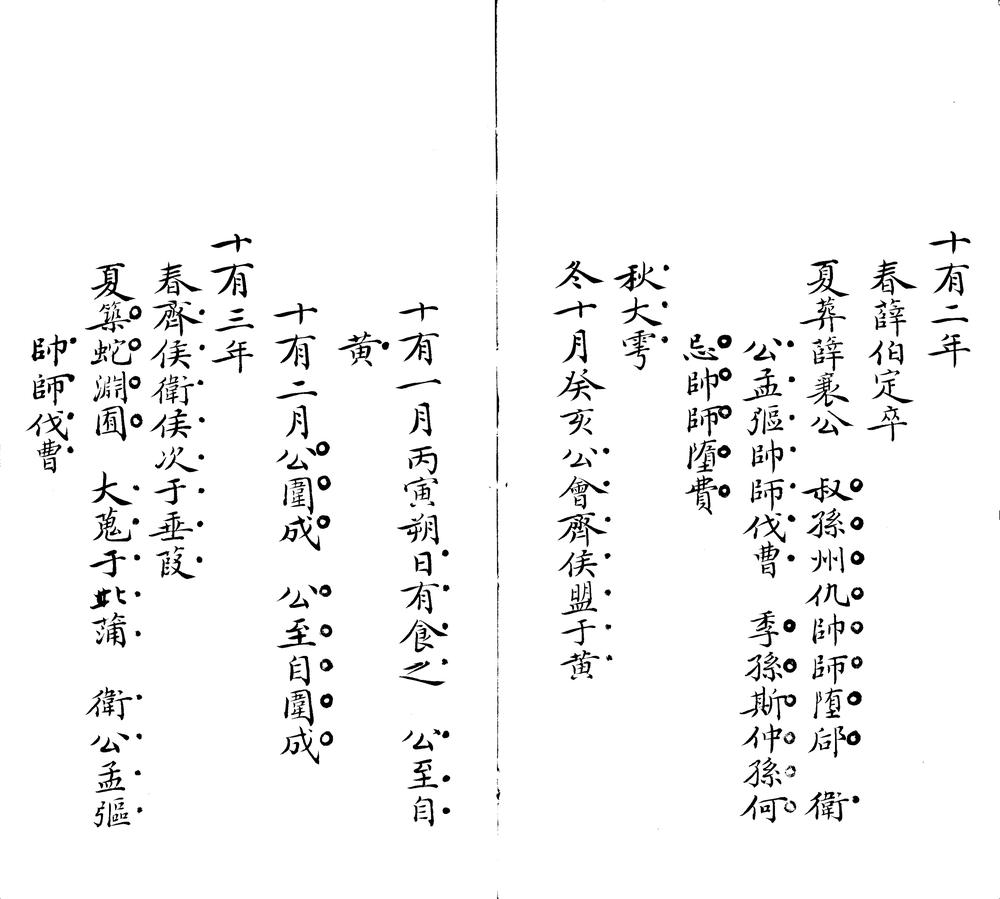 十有二年
春薛伯定卒
夏葬薛襄公　叔孫州仇帥師墮郈　衛
公孟彄帥師伐曹　季孫斯仲孫何
忌帥師墮費
秋大雩
冬十月癸亥公會齊侯盟于黃
十有一月丙寅朔日有食之　公至自
黃
十有二月公圍成　公至自圍成
十有三年
春齊侯衛侯次于垂葭
夏築蛇淵囿　大蒐于比蒲　衛公孟彄
帥師伐曹